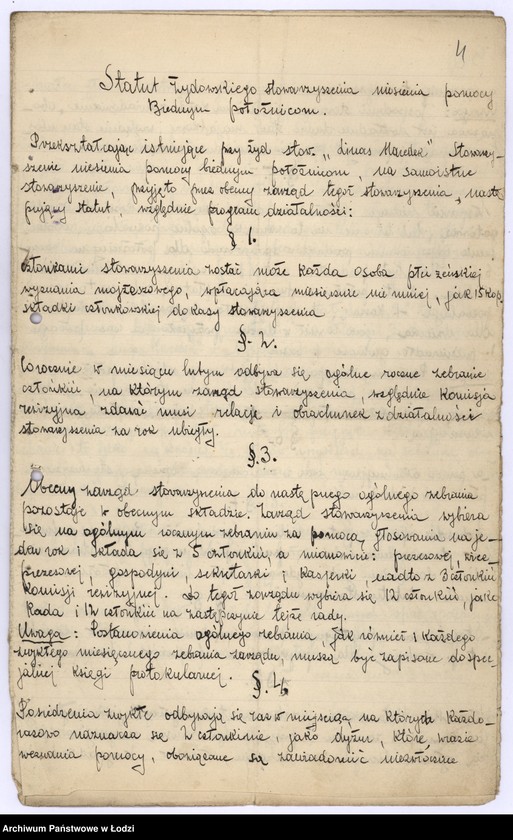 4
Statut Żydowskiego stowarzyszenia niesienia pomocy
Biednym położnicom.
Przekształcając istniejące przy żyd. stow. „Linas Hacedek" Stowarzy-
szenie niesienia pomocy biednym położnicom, na samoistne
stowarzyszenie, przyjęto przez obecny zarząd tegoż stowarzyszenia, nastę-
pujący statut, względnie program działalności:
§ 1.
Członkami stowarzyszenia zostać może każda osoba płci żeńskiej
wyznania mojżeszowego, wpłacająca miesięcznie nie mniej, jak 15 kop.
składki członkowskiej do kasy stowarzyszenia
§. 2.
Corocznie w miesiącu lutym odbywa się ogólne roczne zebranie
członkiń, na którym zarząd stowarzyszenia, względnie Komisja
rewizyjna zdawać musi relację i obrachunek z działalności
stowarzyszenia za rok ubiegły.
§. 3.
Obecny zarząd stowarzyszenia do następnego ogólnego zebrania
pozostaje w obecnym składzie. Zarząd stowarzyszenia wybiera
się na ogólnym rocznym zebraniu za pomocą głosowania na je-
den rok i składa się z 5 członkiń, a mianowicie: prezesowej, wice
prezesowej, gospodyni, sekretarki i kasjerki, nadto z 3 członkiń
Komisji rewizyjnej. Do tegoż zarządu wybiera się 12 członkiń, jako
Rada i 12 członkiń na zastępczynie tejże rady.
Uwaga: Postanowienia ogólnego zebrania, jak również i każdego
zwykłego miesięcznego zebrania zarządu, muszą być zapisane do spec-
jalnej księgi protokularnej.
§. 4.
Posiedzenia zwykłe odbywają się raz w miesiącu na których każdo-
razowo naznacza się 2 członkinie, jako dyżur, które, w razie
wezwania pomocy, obowiązane są zawiadomić niezwłocznie
Archiwum Państwowe w Łodzi